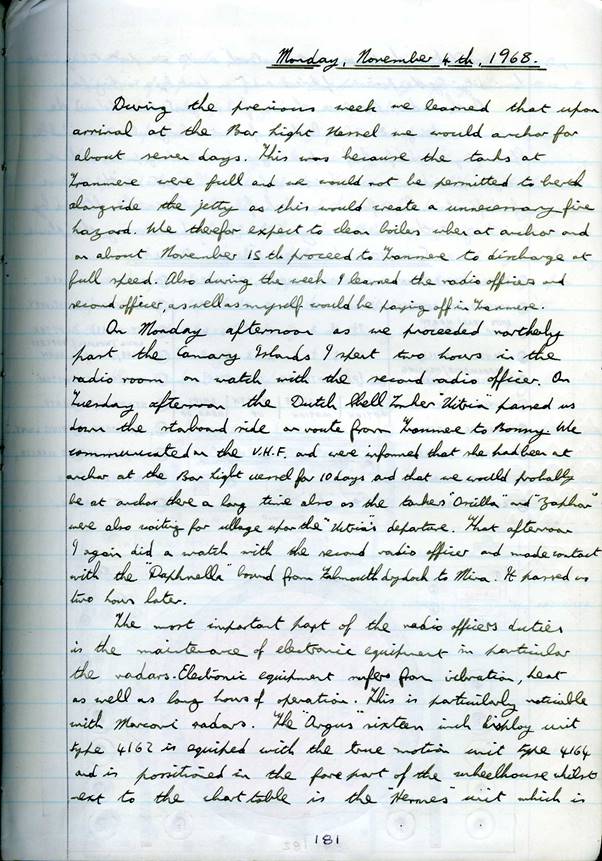 Monday, November 4th, 1968.
During the previous week we learned that upon
arrival at the Bar Light Vessel we would anchor for
about seven days. This was because the tanks at
Tranmere were full and we would not be permitted to berth
alongside the jetty as this would create a unnecessary fire
hazard. We therefor expect to clean boiles when at anchor and
on about November 15th proceed to Tranmere to discharge at
full speed. Also during the week I learned the radio officer and
second officer, as well as myself would be paying off in Tranmere.
On Monday afternoon as we proceeded northerly
past the Canary Islands I spent two hours in the
radio room on watch with the second radio officer. On
Tuesday afternoon the Dutch Shell Tanker "Vitrea" passed us
down the starboard side on route from Tranmere to Bonny. We
communicated on the V.H.F. and were informed that she had been at
anchor at the Bar Light vessel for 10 days and that we would probably
be at anchor there a long time also as the tankers "Oscilla" and "Zaphon"
were also waiting for ullage upon the "Vitrea's" departure. That afternoon
I again did a watch with the second radio officer and made contact
with the "Daphnella" bound from Falmouth drydock to Mina. It passed us
two hours later.
The most important part of the radio officers duties
is the maintenance of electronic equipment in particular
the radars. Electronic equipment suffers from vibration, heat
as well as long hours of operation. This is particularly noticable
with Marconi radars. The "Argus" sixteen inch display unit
type 4162 is equiped with the true motion unit type 4164
and is possitioned in the fore part of the wheelhouse whilst
next to the chart table is the "Hermes" unit which is
181